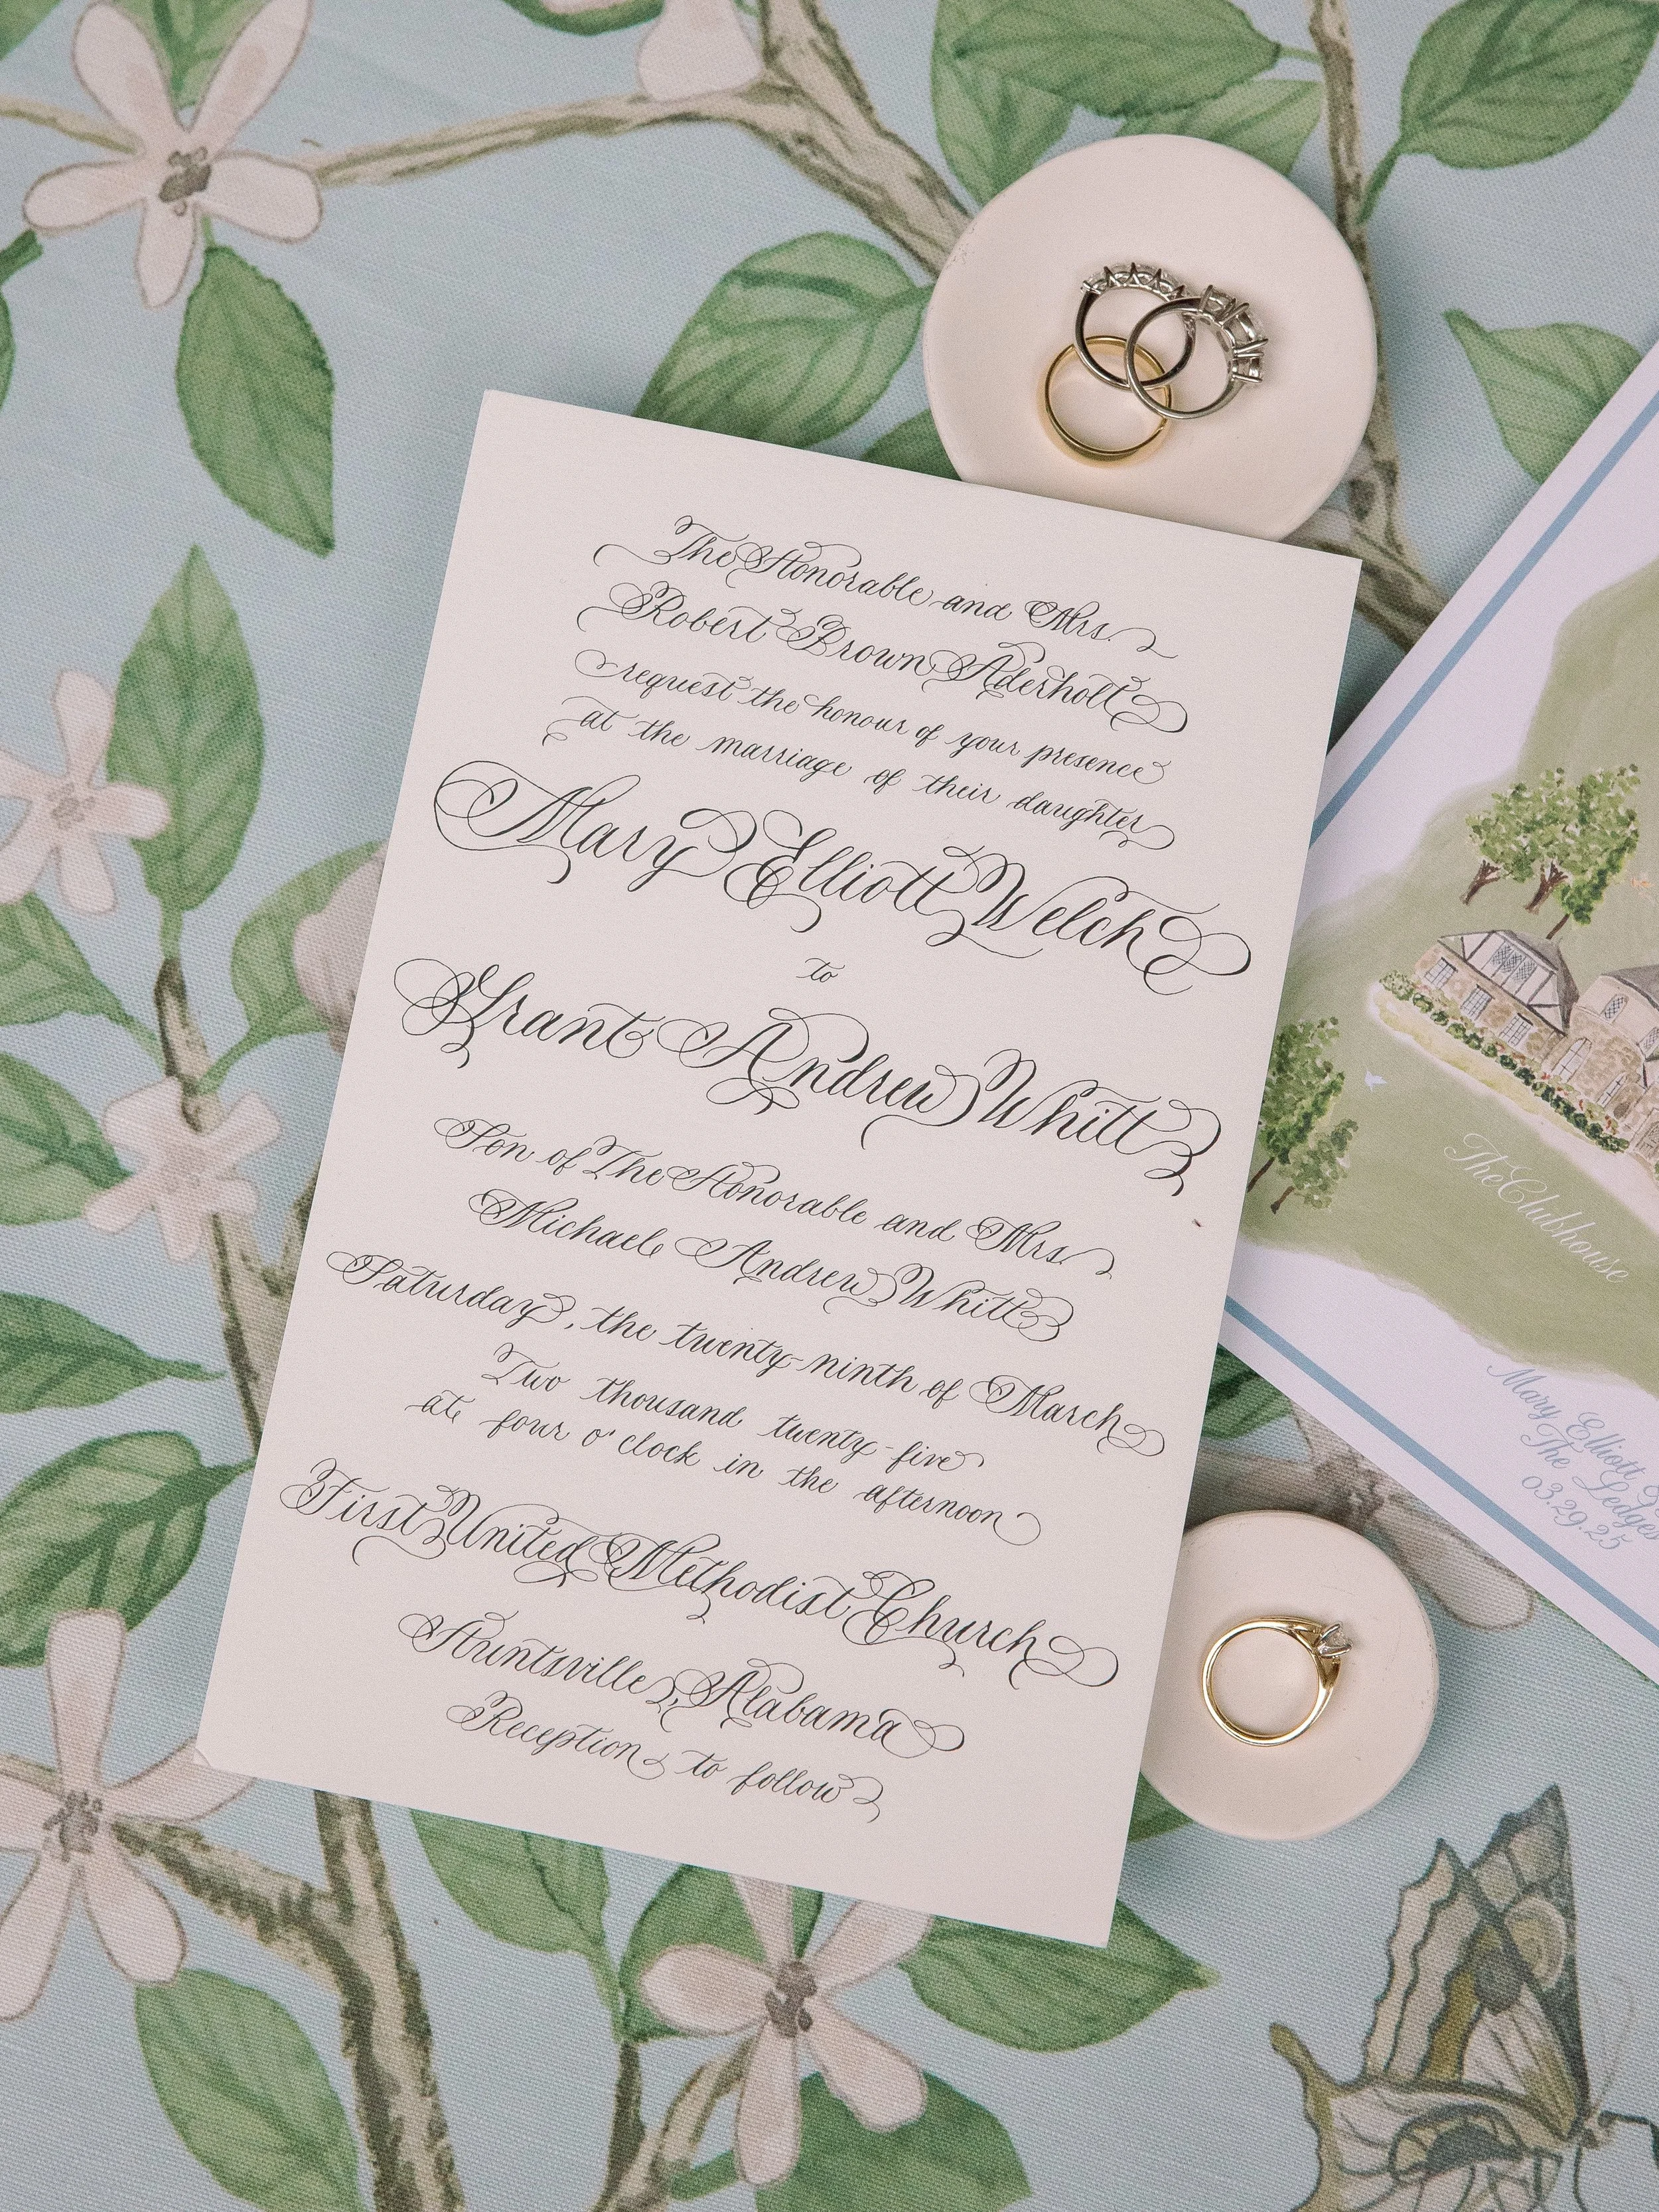 The Honorable and Mrs.
Robert Brown Aderholt
request the honour of your presence
at the marriage of their daughter
Mary Elliott Welch
to
Grant Andrew Whitt
Son of The Honorable and Mrs.
Michael Andrew Whitt
Saturday, the twenty-ninth of March
Two thousand twenty-five
at four o'clock in the afternoon
First United Methodist Church
Huntsville, Alabama
Reception to follow
The Clubhouse
Mary Elliott
The Ledges
03.29.25